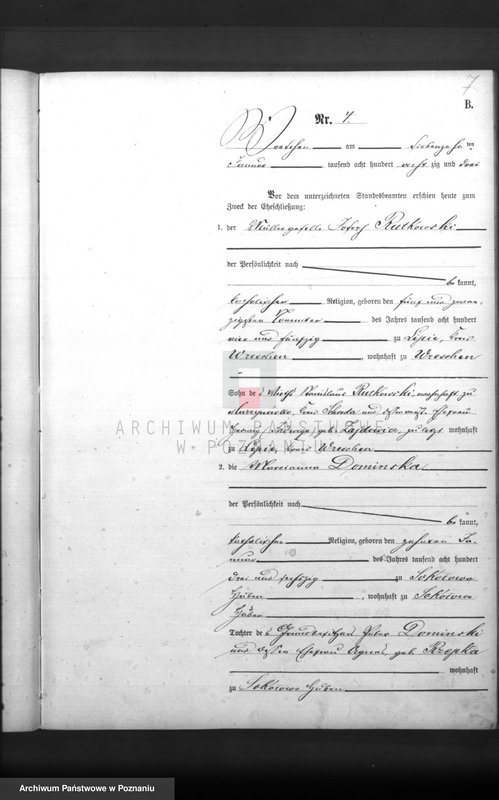 7
B.
Nr. 7.
Wreschen am siebenzehn ten
Januar tausend acht hundert acht zig und drei
Vor dem unterzeichneten Standesbeamten erschien heute zum
Zweck der Eheschließung:
1. der Müllergeselle Joseph Rutkowski
der Persönlichkeit nach
be kannt,
katholischer Religion, geboren den fünf und zwan-
zigsten November des Jahres tausend acht hundert
vier und fünfzig zu Lipie, Kreis
Wreschen, wohnhaft zu Wreschen
Sohn de s Wirths Stanislaus Rutkowski, wohnhaft zu
Kreis Schroda und dessen Ehefrau
geb. zuletzt wohnhaft
zu Lipie, Kreis Wreschen
ARCHIWUM PAŃSTWOWE
W POZNANIU
2. die Marianna Dominska
der Persönlichkeit nach
be kannt,
katholischer Religion, geboren den zehnten Ja-
nuar des Jahres tausend acht hundert
drei und sechszig zu Sokolowo
Huben, wohnhaft zu Sokolowo
Huben
Tochter de s Grundbesitzers Peter Dominski
und dessen Ehefrau Agnes, geb. Rzepka
wohnhaft
zu Sokolowo Huben
Archiwum Państwowe w Poznaniu
Archiwum Państwowe w Poznaniu